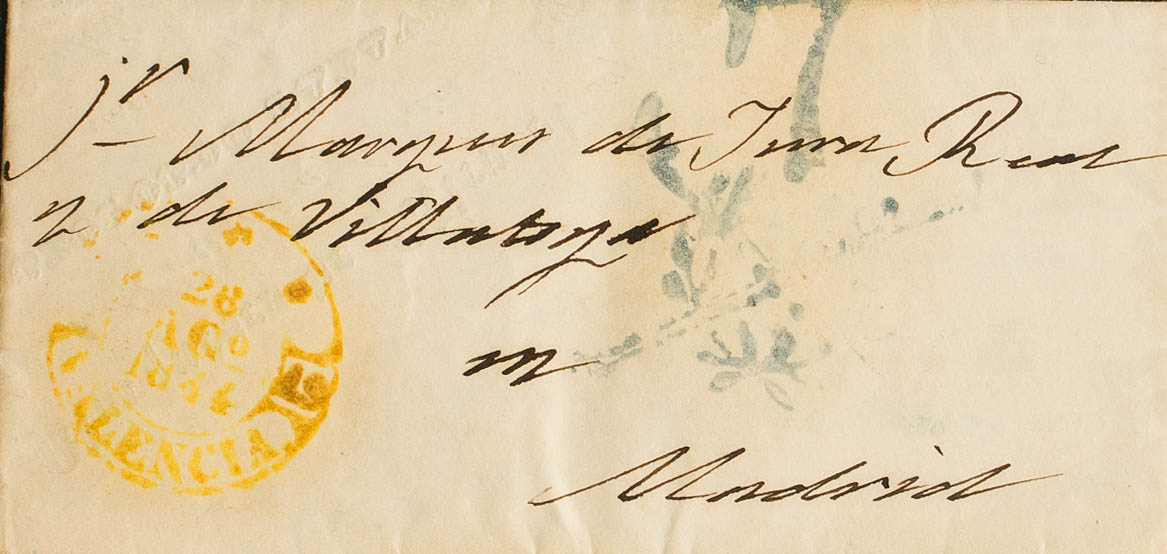 Sr Marques de Jura Real
y de Villatoya
en
Madrid
28
AGO
1844
VALENCIA
7